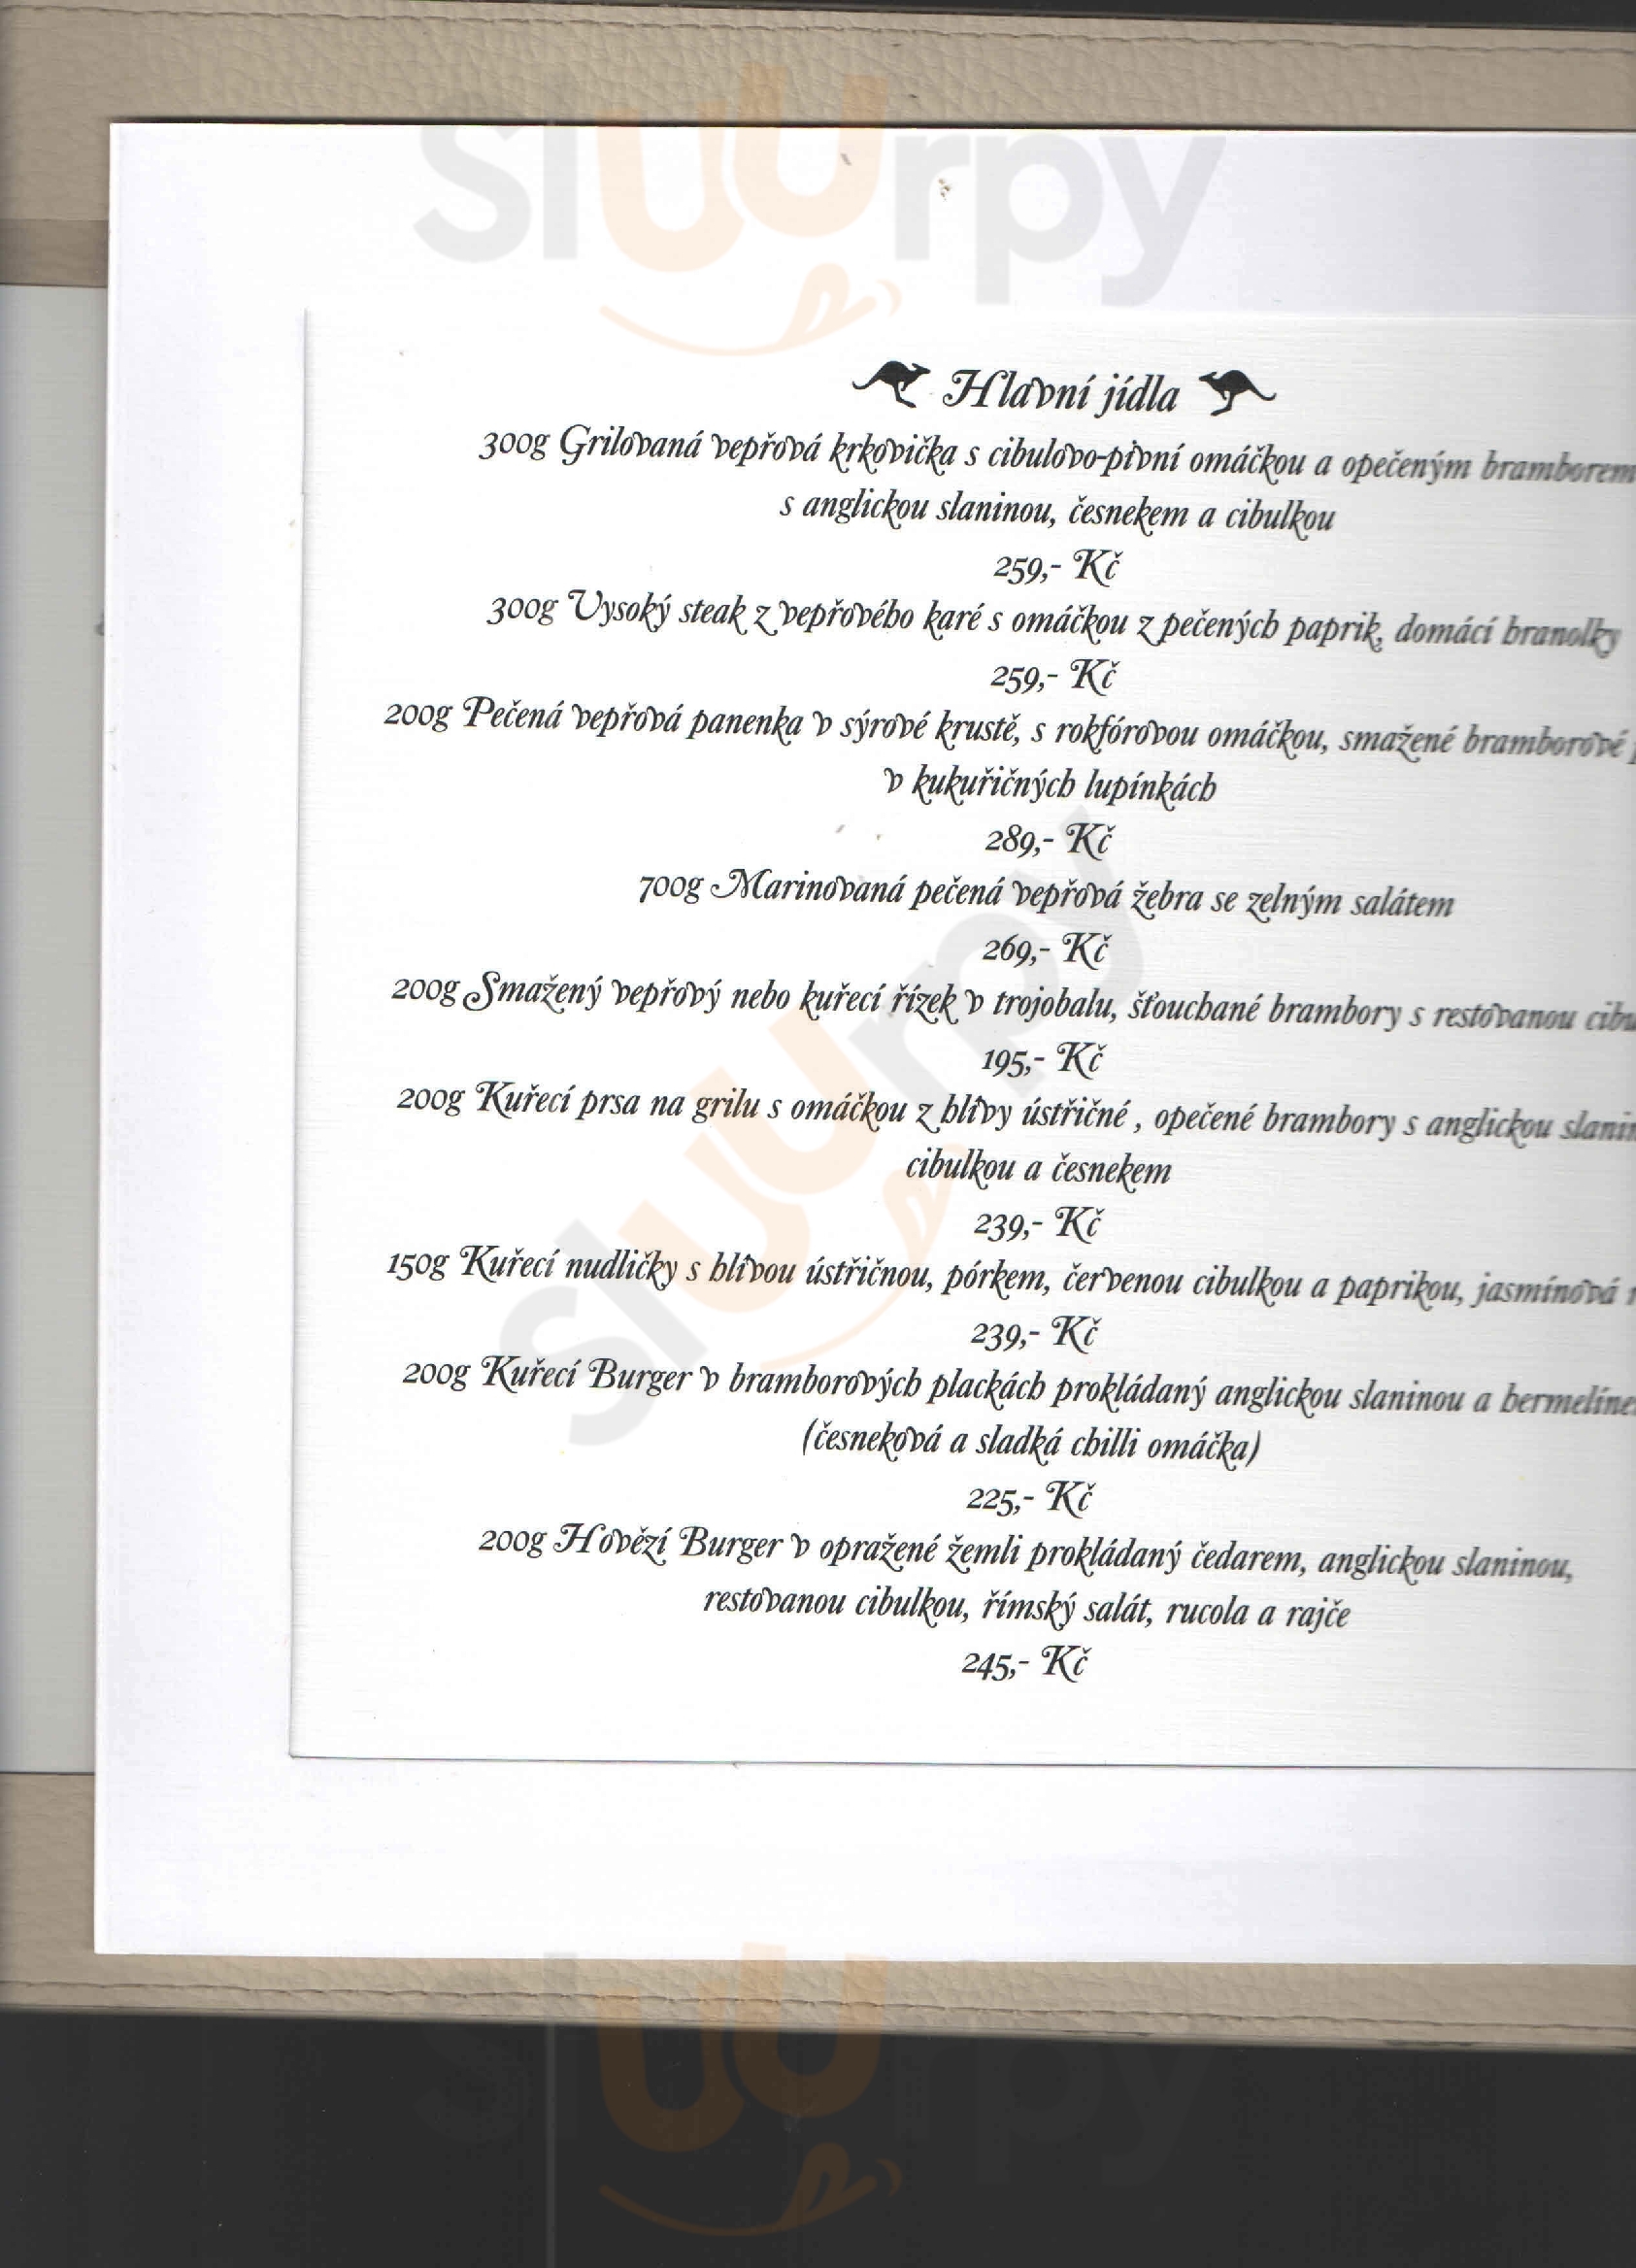 sluurpy
Hlavní jídla
300g Grilovaná vepřová krkovička s cibulovo-pivní omáčkou a opečeným bramborem
s anglickou slaninou, česnekem a cibulkou
259,- Kč
300g Vysoký steak z vepřového karé s omáčkou z pečených paprik, domácí hranolky
259,- Kč
200g Pečená vepřová panenka v sýrové krustě, s rokfórovou omáčkou, smažené bramborové
v kukuřičných lupínkách
289,- Kč
700g Marinovaná pečená vepřová žebra se zelným salátem
269,- Kč
200g Smažený vepřový nebo kuřecí řízek v trojobalu, šťouchané brambory s restovanou cibu
195,- Kč
200g Kuřecí prsa na grilu s omáčkou z hlívy ústřičné , opečené brambory s anglickou slanin
cibulkou a česnekem
239,- Kč
150g Kuřecí nudličky s hlívou ústřičnou, pórkem, červenou cibulkou a paprikou, jasmínová
239,- Kč
200g Kuřecí Burger v bramborových plackách prokládaný anglickou slaninou a hermelíne
(česneková a sladká chilli omáčka)
225,- Kč
200g Hovězí Burger v opražené žemli prokládaný čedarem, anglickou slaninou,
restovanou cibulkou, římský salát, rucola a rajče
245,- Kč
sluurpy
sluurpy